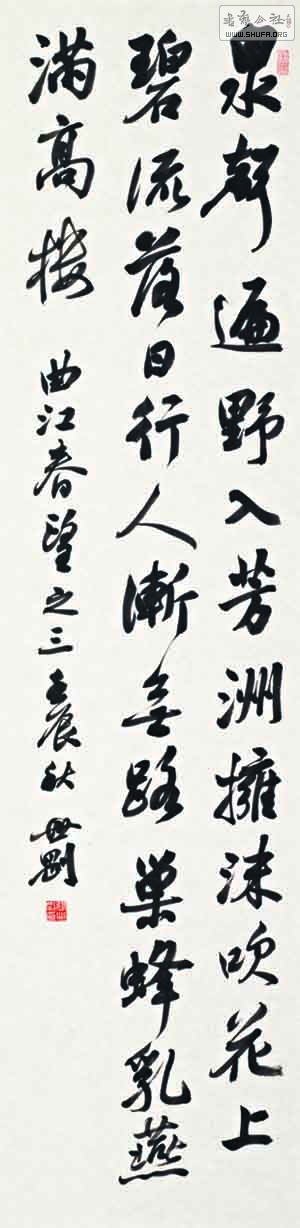 泉聲遍野入芳洲擁沫吹花上
碧流落日行人漸無路巢蜂乳燕
滿高樓
曲江春望之三壬辰秋世剛
书法公社
WWW.SHUFA.ORG